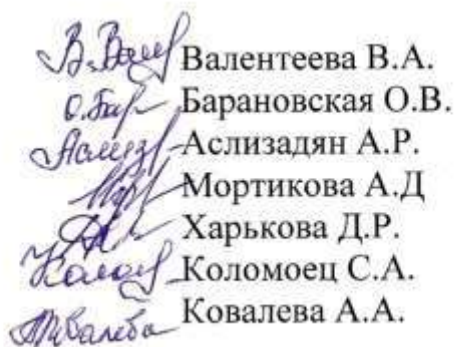 Валентеева В.А.
Барановская О.В.
Аслизадян А.Р.
Мортикова А.Д
Харькова Д.Р.
Коломоец С.А.
Ковалева А.А.